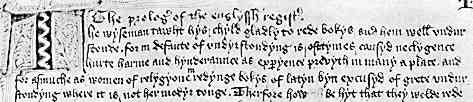 The prolog of the englyssh regist
he wyseman tawht hys chyld gladly to rede bokys and hem well vndur
stonde for in defaute of vndyrstondyng is ofttymes causyd neclygence
hurte harme and hynderaunce as experyence prevyth in many a place and
for asmuche as women of relygyone in redynge bokys of latyn byn excusyd of grete vndur
stondyng where it is not her modyr tonge Therfore how be hyt that they wolde rede